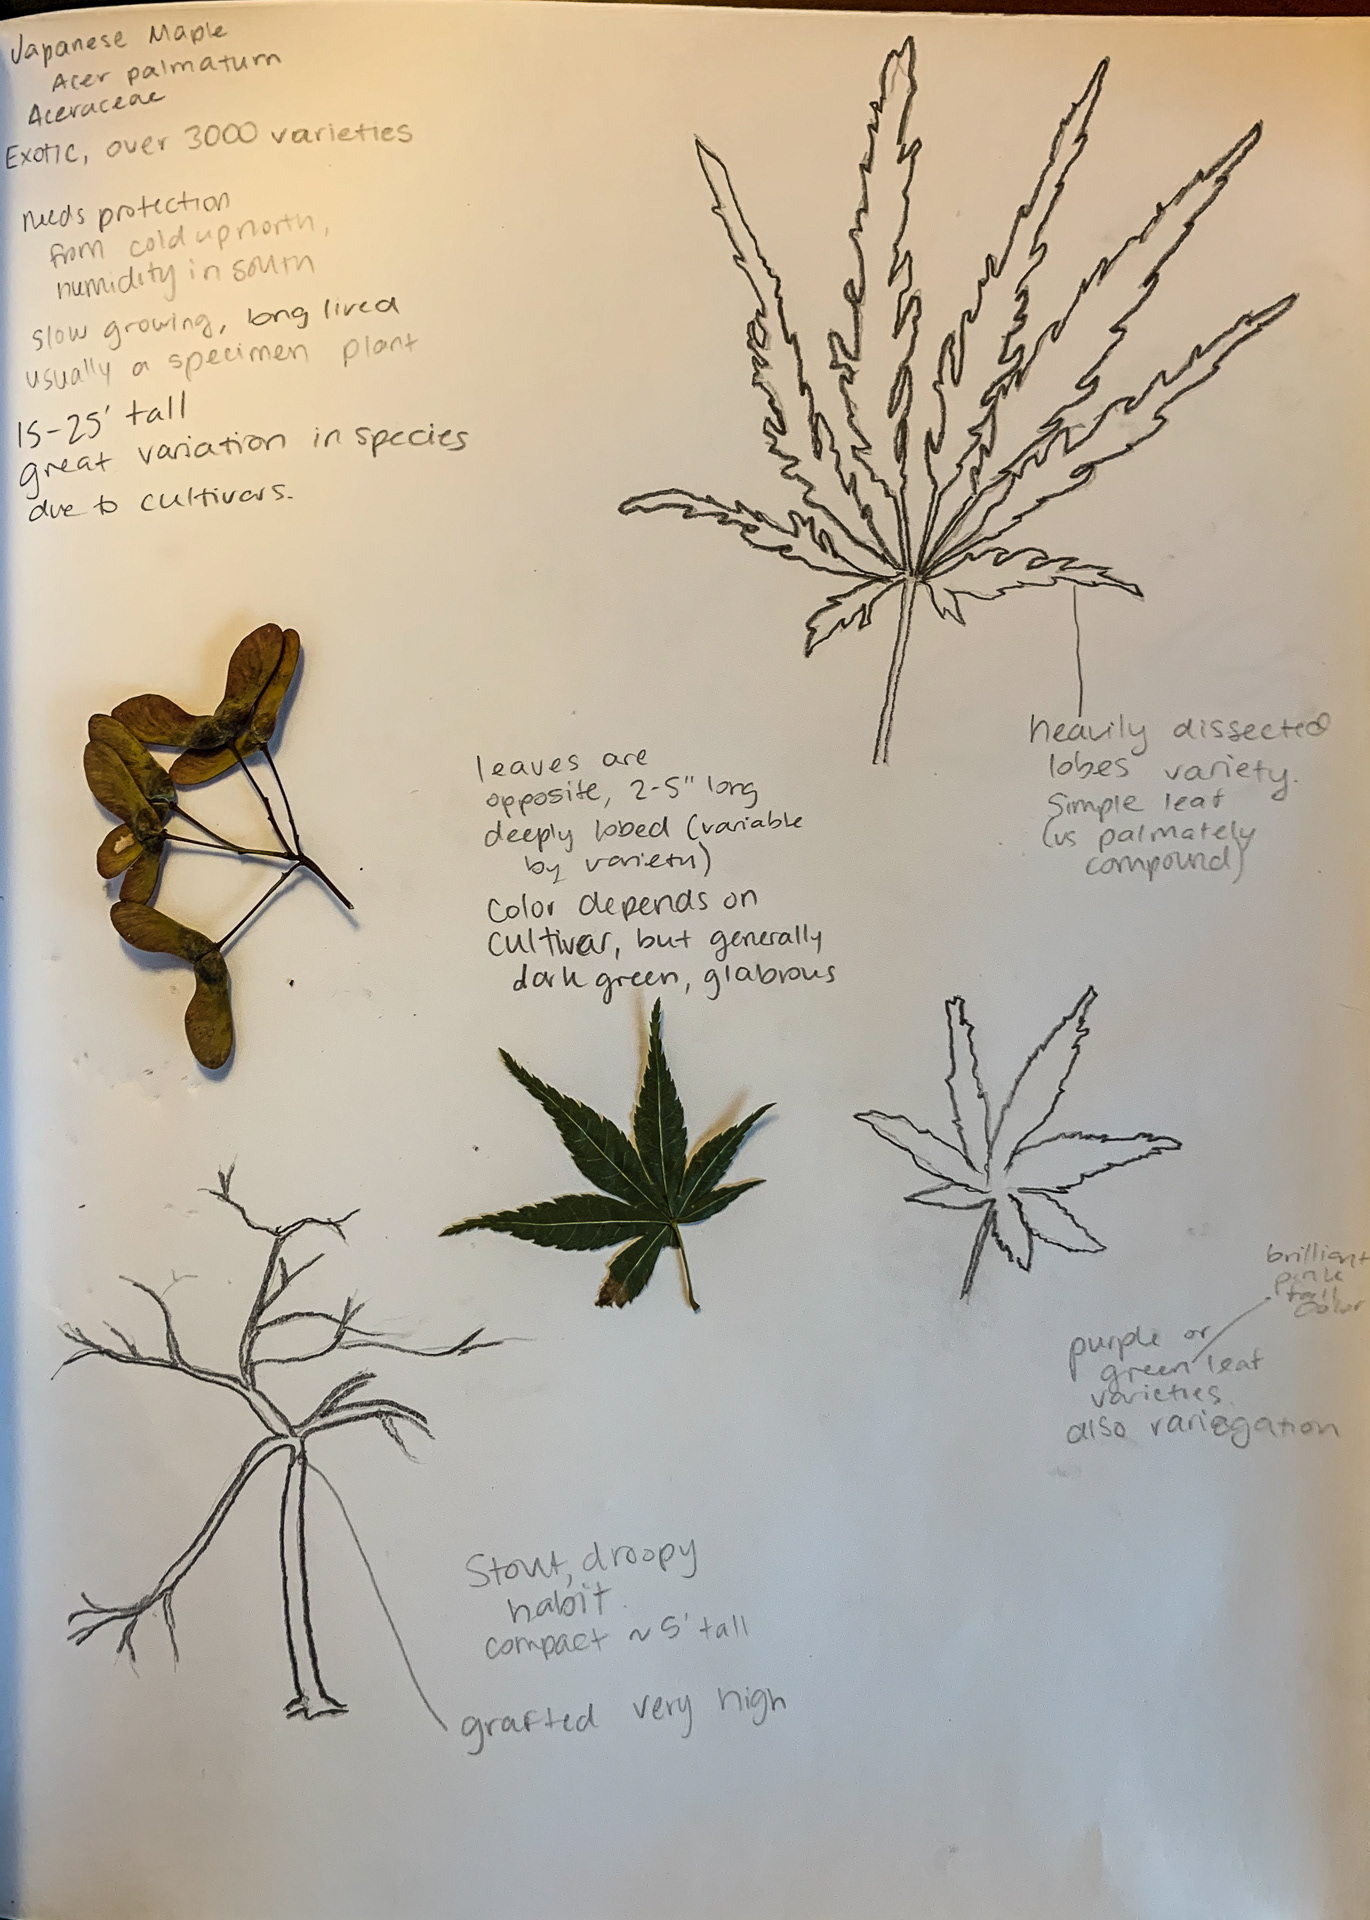 Japanese Maple
Acer palmatum
Aceraceae
Exotic, over 3000 varieties
needs protection
from cold up north,
humidity in south
slow growing, long lived
usually a specimen plant
15-25' tall
great variation in species
due to cultivars.
heavily dissected
lobes variety.
simple leaf
(vs palmately
compound)
leaves are
opposite, 2-5" long
deeply lobed (variable
by variety)
Color depends on
cultivar, but generally
dark green, glabrous
brilliant
pink
fall
color
purple or
green leaf
varieties.
also variegation
Stout, droopy
habit.
compact ~5' tall
grafted very high